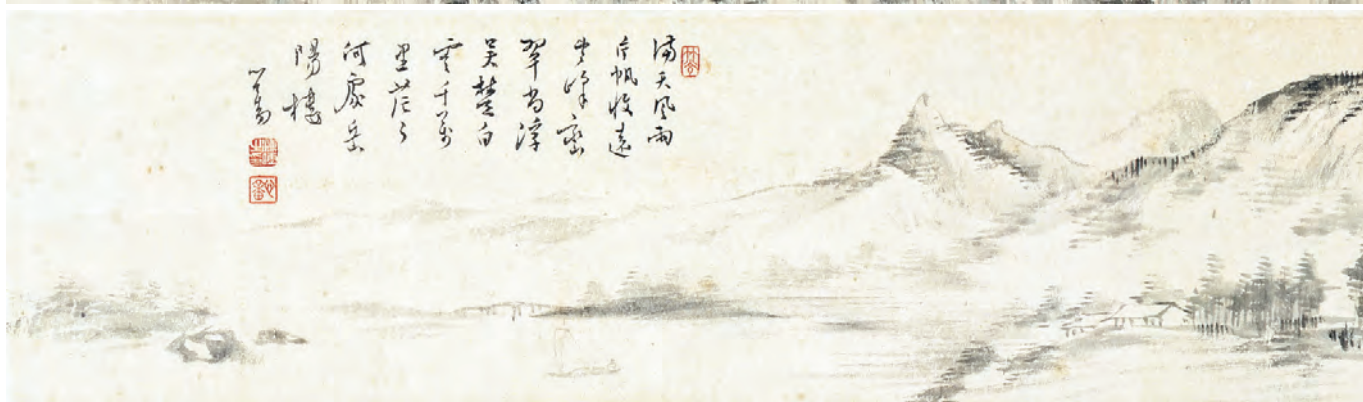 滿天風雨
片帆收遠
峰巒
翠尚浮
吳楚白
雲千萬
里茫々
何處岳
陽樓
心畬